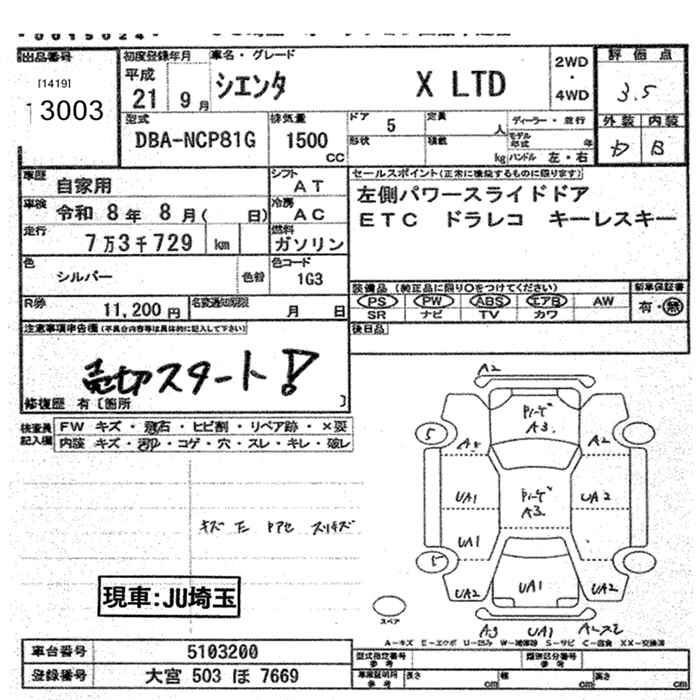 出品番号
[1419]
13003
初度登録年月
平成
21年 9月
車名・グレード
シエンタ X LTD
2WD
・
4WD
評価点
3.5
外装 内装
B
型式
DBA-NCP81G
排気量
1500
CC
ドア 5
定員 人
形状
積載 kg
ディーラー・並行
モデル年式 年
ハンドル 左・右
車歴
自家用
シフト
AT
車検
令和 8年 8月( 日)
冷房
AC
走行
7万3千729 km
燃料
ガソリン
色
シルバー
色替
色コード
1G3
R券
11,200円
名変通知期限
月 日
セールスポイント(正常に機能するものに限ります)
左側パワースライドドア
ETC ドラレコ キーレスキー
装備品(純正品に限り○をつけてください)
PS PW ABS エアB AW
SR ナビ TV カワ
新車保証書
有・無
後日品
注意事項申告欄(不具合内容等は具体的に記入して下さい)
売切スタート!
修復歴 有〔箇所 〕
検査員
記入欄
FW キズ・飛石・ヒビ割・リペア跡・×要
内装 キズ・汚・コゲ・穴・スレ・キレ・破レ
現車:JU埼玉
A2
ルーフ
A3
5
A2
UA1
A3
UA2
UA1
5
UA2
UA1
UA2
スペア
A3 UA1
A-キズ E-エクボ U-凹み W-補修跡 S-サビ C-腐食 XX-交換済
車台番号 5103200
登録番号 大宮 503 ほ 7669
型式指定番号
参考
類別区分番号
参考
車庫証明用
参考
長さ cm 幅 cm 高さ cm